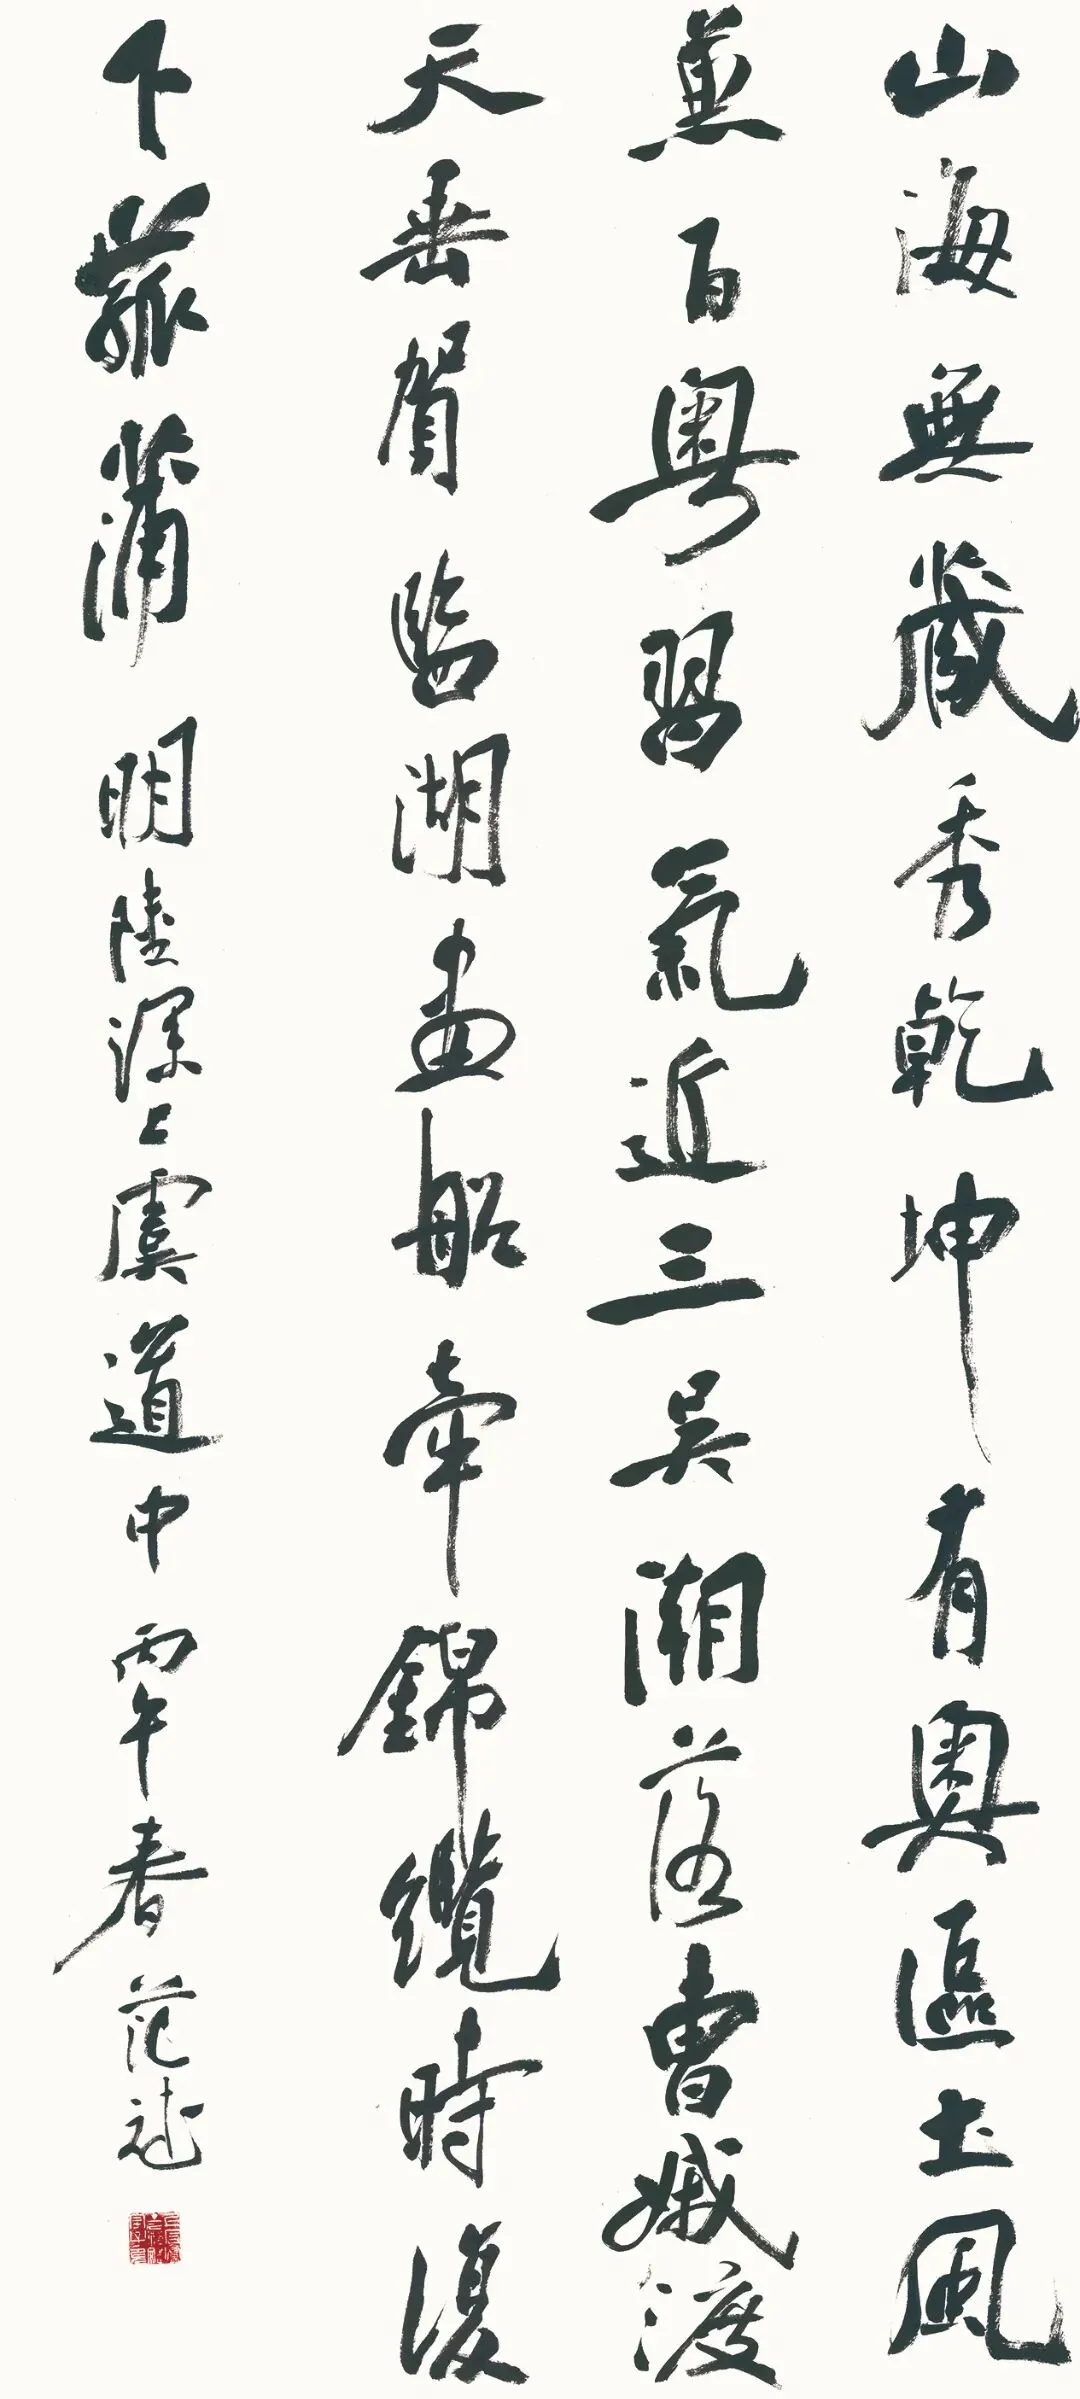 山海無藏秀乾坤有奧區土風
兼百粵習氣近三吳潮落曹娥渡
天垂賀監湖畫船牽錦纜時復
下菰蒲 明陸深上虞道中 丙午春 范